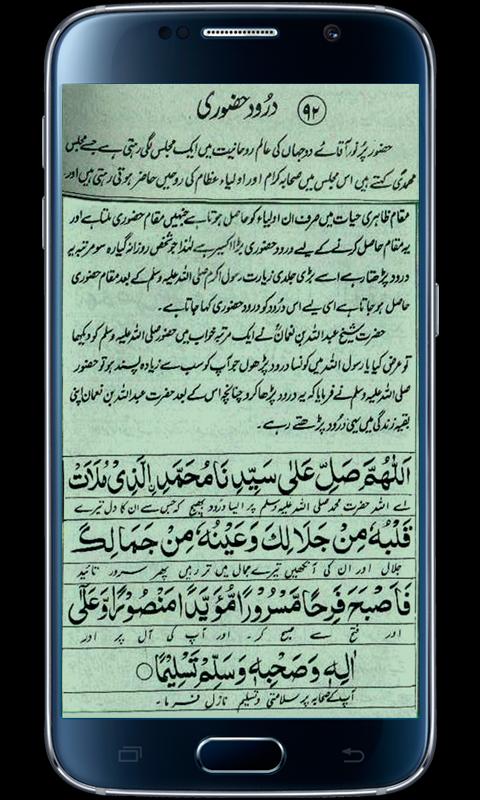 ۹۲ درُود حضوری
حضور پُر نور آقائے دو جہاں کی عالمِ روحانیت میں ایک مجلس لگی رہتی ہے جسے مجلسِ
محمدیؐ کہتے ہیں اس مجلس میں صحابہ کرام اور اولیاء عظام کی روحیں حاضر ہوتی رہتی ہیں اور
مقام ظاہری حیات میں صرف ان اولیاء کو حاصل ہوتا ہے جنہیں مقام حضوری ملتا ہے اور
یہ مقام حاصل کرنے کے لیے درود حضوری بڑا اکسیر ہے لہٰذا جو شخص روزانہ گیارہ سو مرتبہ یہ
درود پڑھتا رہے اسے بڑی جلدی زیارت رسول اکرم صلی اللہ علیہ وسلم کے بعد مقام حضوری
حاصل ہو جاتا ہے اسی لیے اس درُود کو درود حضوری کہا جاتا ہے۔
حضرت شیخ عبداللہ بن نعمانؒ نے ایک مرتبہ خواب میں حضور صلی اللہ علیہ وسلم کو دیکھا
تو عرض کیا یا رسول اللہ میں کونسا درود پڑھوں جو آپ کو سب سے زیادہ پسند ہو تو حضور
صلی اللہ علیہ وسلم نے فرمایا کہ یہ درود پڑھا کرو چنانچہ اس کے بعد حضرت عبداللہ بن نعمان اپنی
بقیہ زندگی میں یہی درُود پڑھتے رہے۔
اَللّٰهُمَّ صَلِّ عَلٰی سَيِّدِنَا مُحَمَّدِ ِالَّذِیْ مَلَأْتَ
اے اللہ حضرت محمد صلی اللہ علیہ وسلم پر ایسا درود بھیج کہ جس سے ان کا دل تیرے
قَلْبُهٗ مِنْ جَلَالِكَ وَعَيْنُهٗ مِنْ جَمَالِكَ
جلال اور ان کی آنکھیں تیرے جمال میں تر رہیں پھر سرور تائید
فَاَصْبَحَ فَرِحًا مَّسْرُوْرًا مُّؤَيَّدًا مَّنْصُوْرًا وَّعَلٰٓی
اور فتح سے صبح کر۔ اور آپ کی آل پر اور
اٰلِهٖ وَصَحْبِهٖ وَسَلِّمْ تَسْلِيْمًا ○
آپ کے صحابہ پر سلامتی و تسلیم نازل فرما۔